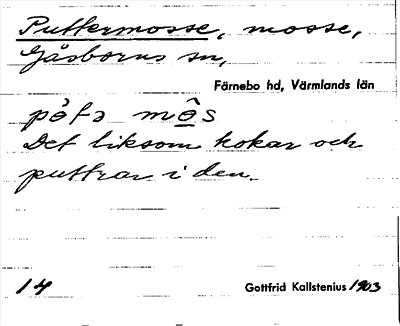 Puttermosse, mosse,
Gåsborns sn,
Färnebo hd, Värmlands län
Det liksom kokar och
puttrar i den.
14 Gottfrid Kallstenius 1903